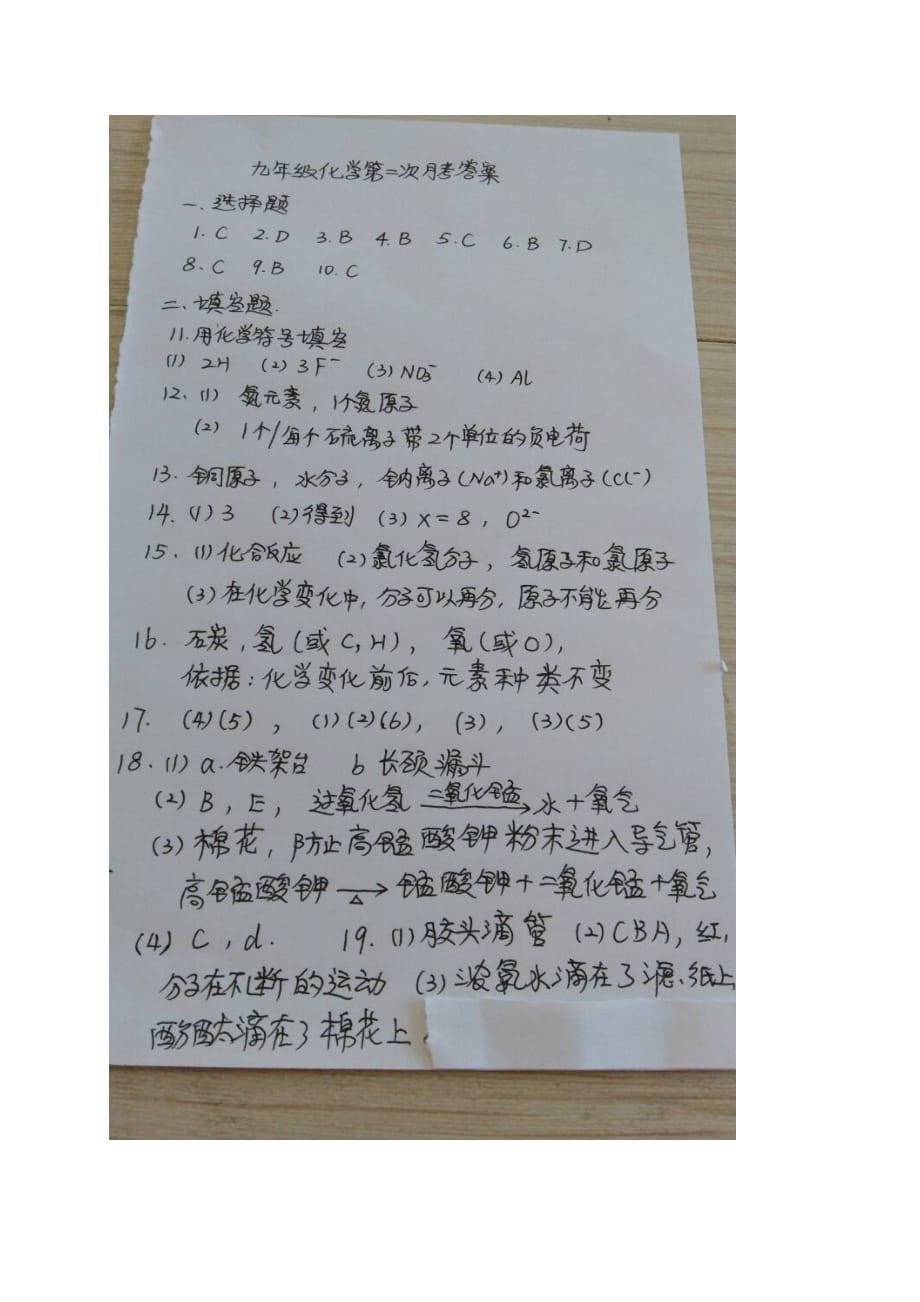 九年级化学第二次月考答案
一、选择题
1. C 2. D 3. B 4. B 5. C 6. B 7. D
8. C 9. B 10. C
二、填空题.
11. 用化学符号填空
(1) 2H (2) 3F⁻ (3) NO₃⁻ (4) Al
12、(1) 氦元素，1个氦原子
(2) 1个/每个硫离子带2个单位的负电荷
13. 铜原子，水分子，钠离子(Na⁺)和氯离子(Cl⁻)
14. (1) 3 (2)得到 (3) X=8，O²⁻
15. (1)化合反应 (2)氯化氢分子，氢原子和氯原子
(3)在化学变化中，分子可以再分，原子不能再分
16. 碳，氢(或C，H)，氧(或O)，
依据：化学变化前后，元素种类不变
17. (4)(5)，(1)(2)(6)，(3)，(3)(5)
18. (1) a. 铁架台 b 长颈漏斗
(2) B，E，过氧化氢 二氧化锰→ 水+氧气
(3) 棉花，防止高锰酸钾粉末进入导气管，
高锰酸钾 →△ 锰酸钾+二氧化锰+氧气
(4) C，d. 19. (1)胶头滴管 (2) CBA，红，
分子在不断的运动 (3)浓氨水滴在了滤纸上
酚酞滴在了棉花上.